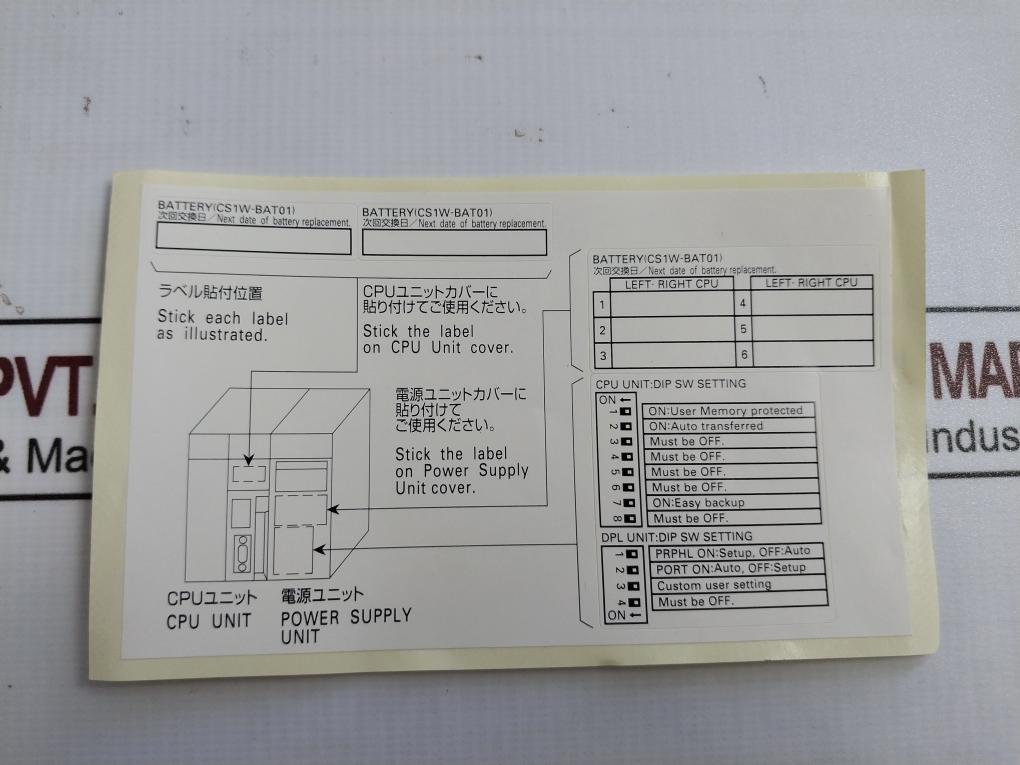 BATTERY(CS1W-BAT01)
次回交換日/Next date of battery replacement.
BATTERY(CS1W-BAT01)
次回交換日/Next date of battery replacement.
ラベル貼付位置
Stick each label
as illustrated.
CPUユニットカバーに
貼り付けてご使用ください。
Stick the label
on CPU Unit cover.
電源ユニットカバーに
貼り付けて
ご使用ください。
Stick the label
on Power Supply
Unit cover.
CPUユニット
CPU UNIT
電源ユニット
POWER SUPPLY
UNIT
BATTERY(CS1W-BAT01)
次回交換日/Next date of battery replacement.
LEFT- RIGHT CPU LEFT- RIGHT CPU
1 4
2 5
3 6
CPU UNIT:DIP SW SETTING
ON ←
1 ON:User Memory protected
2 ON:Auto transferred
3 Must be OFF.
4 Must be OFF.
5 Must be OFF.
6 Must be OFF.
7 ON:Easy backup
8 Must be OFF.
DPL UNIT:DIP SW SETTING
1 PRPHL ON:Setup, OFF:Auto
2 PORT ON:Auto, OFF:Setup
3 Custom user setting
4 Must be OFF.
ON ←
PVT.
& Ma
MAR
indus